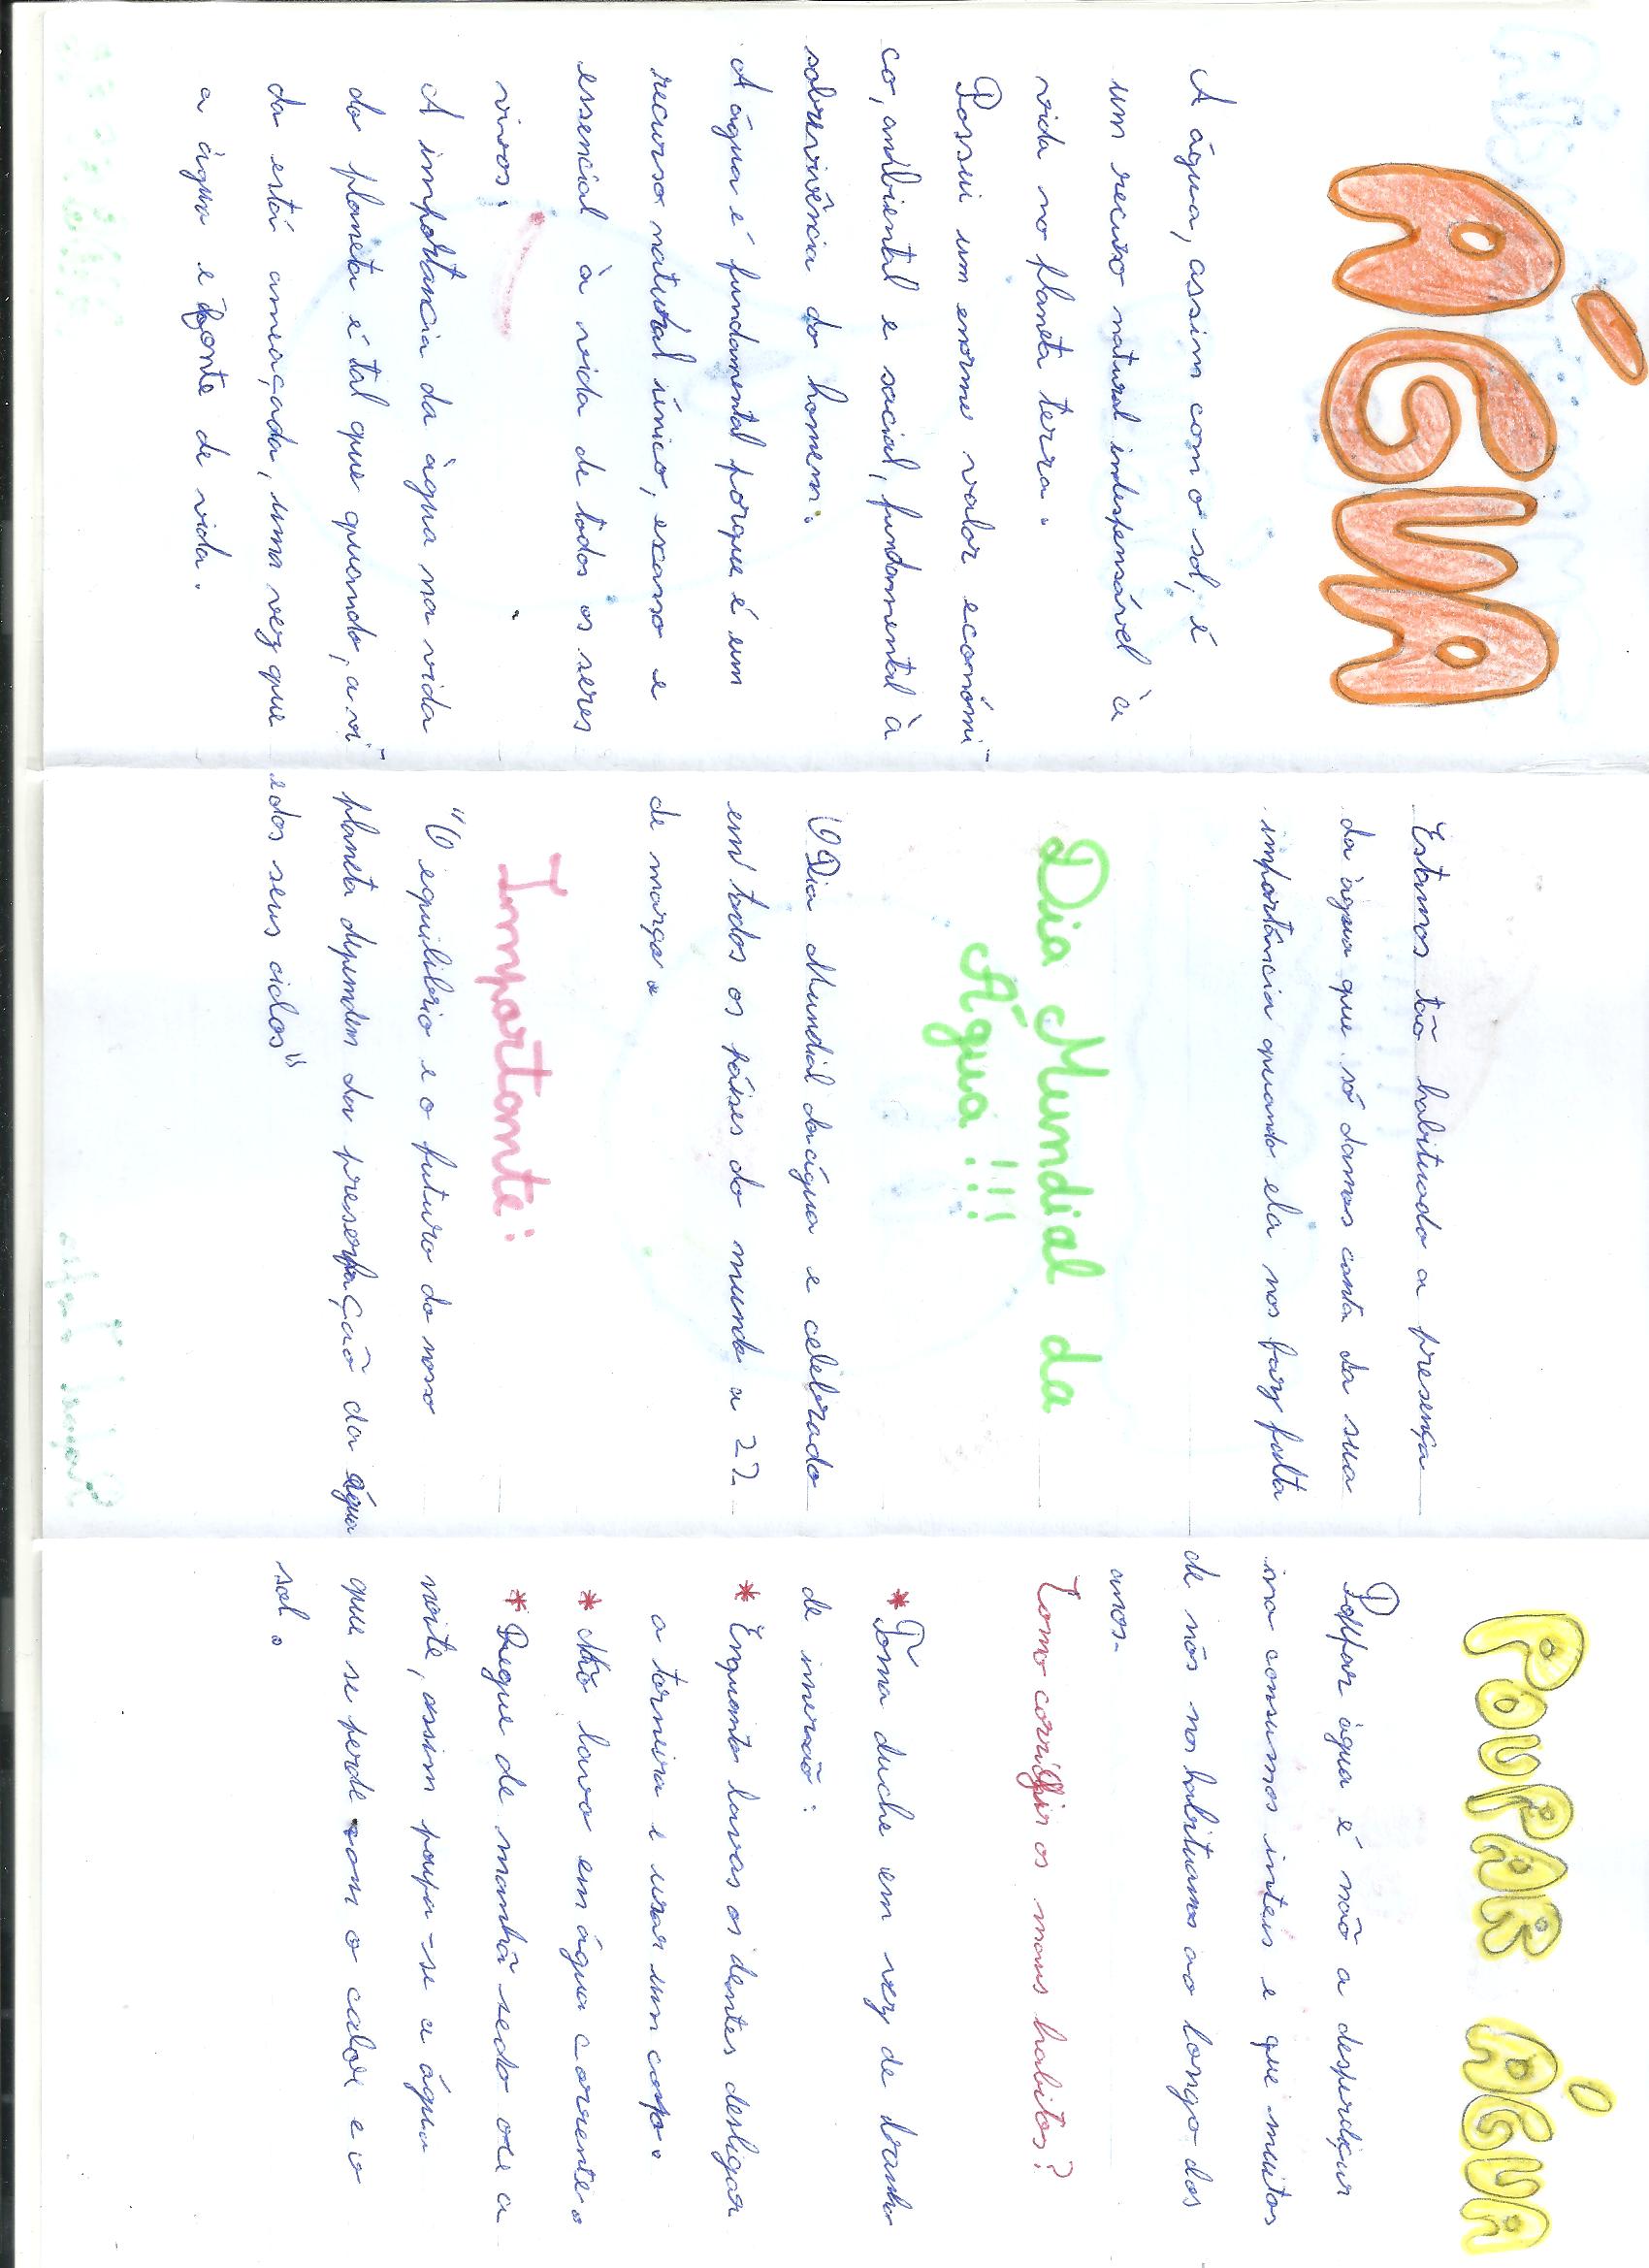 ÁGUA
A água, assim como o sol, é
um recurso natural indespensável à
vida no planeta terra.
Possui um enorme valor económi-
co, ambiental e social, fundamental à
sobrevivência do homem.
A água é fundamental porque é um
recurso natural único, escasso e
essencial à vida de todos os seres
vivos.
A importancia da àgua na vida
do planeta é tal que quando, a vi-
da está ameaçada, uma vez que
a àgua e fonte de vida.
Estamos tão habituado a presença
da àgua que só damos conta da sua
importância quando ela nos fazz falta
Dia Mundial da
Água!!!
O Dia Mundial da água e celebrado
em todos os páises do mundo a 22
de março.
Importante:
"O equilibrio e o futuro do nosso
planeta dependem da preservação da água
e dos seus ciclos"
POUPAR ÁGUA
Poupar àgua é não a desperdiçar
em consumos inteis e que muitos
de nós nos habituamos ao longo dos
anos.
Como corrigir os maus habitos?
* Toma duche em vez de banho
de imersão:
* Enquanto lavas os dentes desligar
a torneira e usar um copo.
* Não lavo em água corrente.
* Regue de manhã sedo ou a
noite, assim poupa-se a água
que se perde com o calor e o
sol.